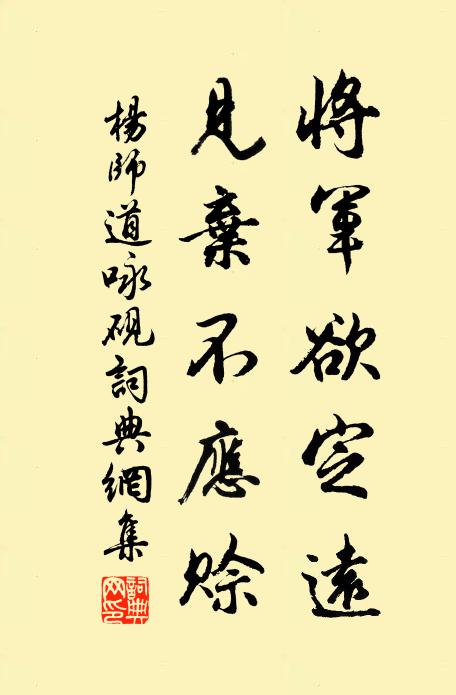 將軍欲定遠
見棄不應賒
楊師道咏硯詞典網集
詞典網印